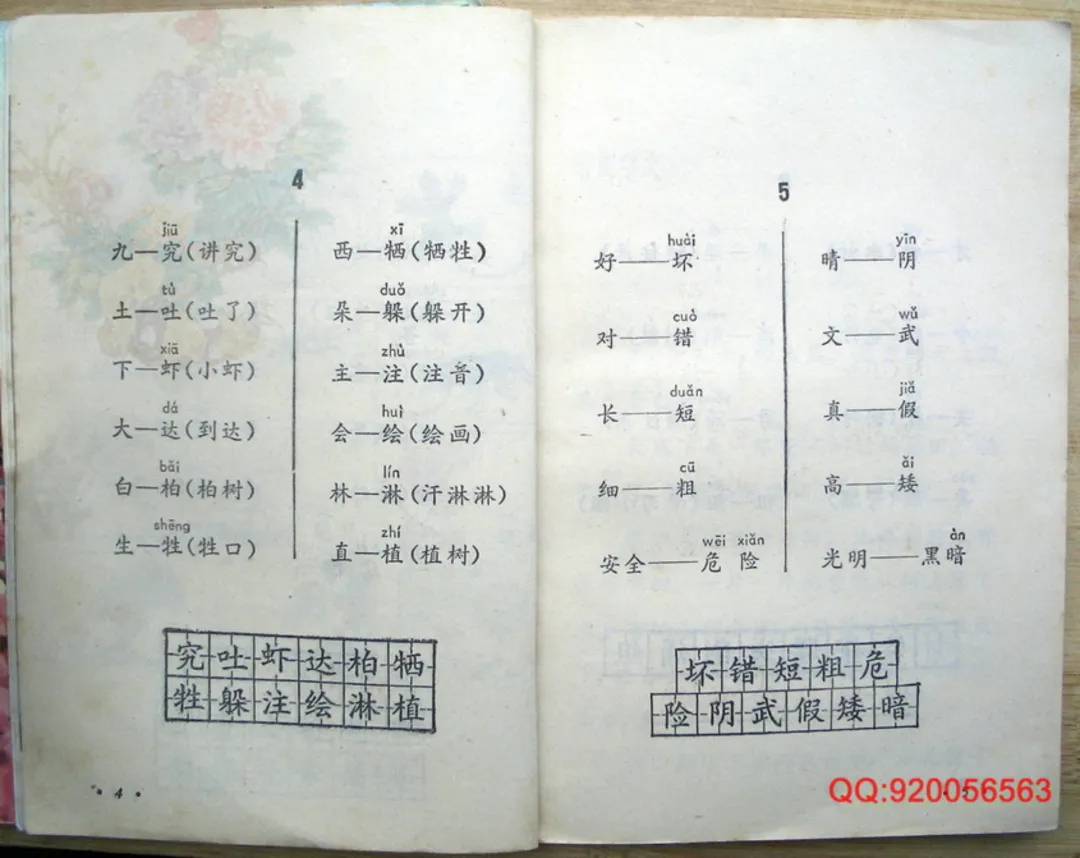 4
jiū
九—究(讲究)
tù
土—吐(吐了)
xiā
下—虾(小虾)
dá
大—达(到达)
bǎi
白—柏(柏树)
shēng
生—牲(牲口)
xī
西—牺(牺牲)
duǒ
朵—躲(躲开)
zhù
主—注(注音)
huì
会—绘(绘画)
lín
林—淋(汗淋淋)
zhí
直—植(植树)
究吐虾达柏牺
牲躲注绘淋植
· 4 ·
5
huài
好——坏
cuò
对——错
duǎn
长——短
cū
细——粗
wēi xiǎn
安全——危险
yīn
晴——阴
wǔ
文——武
jiǎ
真——假
ǎi
高——矮
àn
光明——黑暗
坏错短粗危
险阴武假矮暗
QQ:920056563